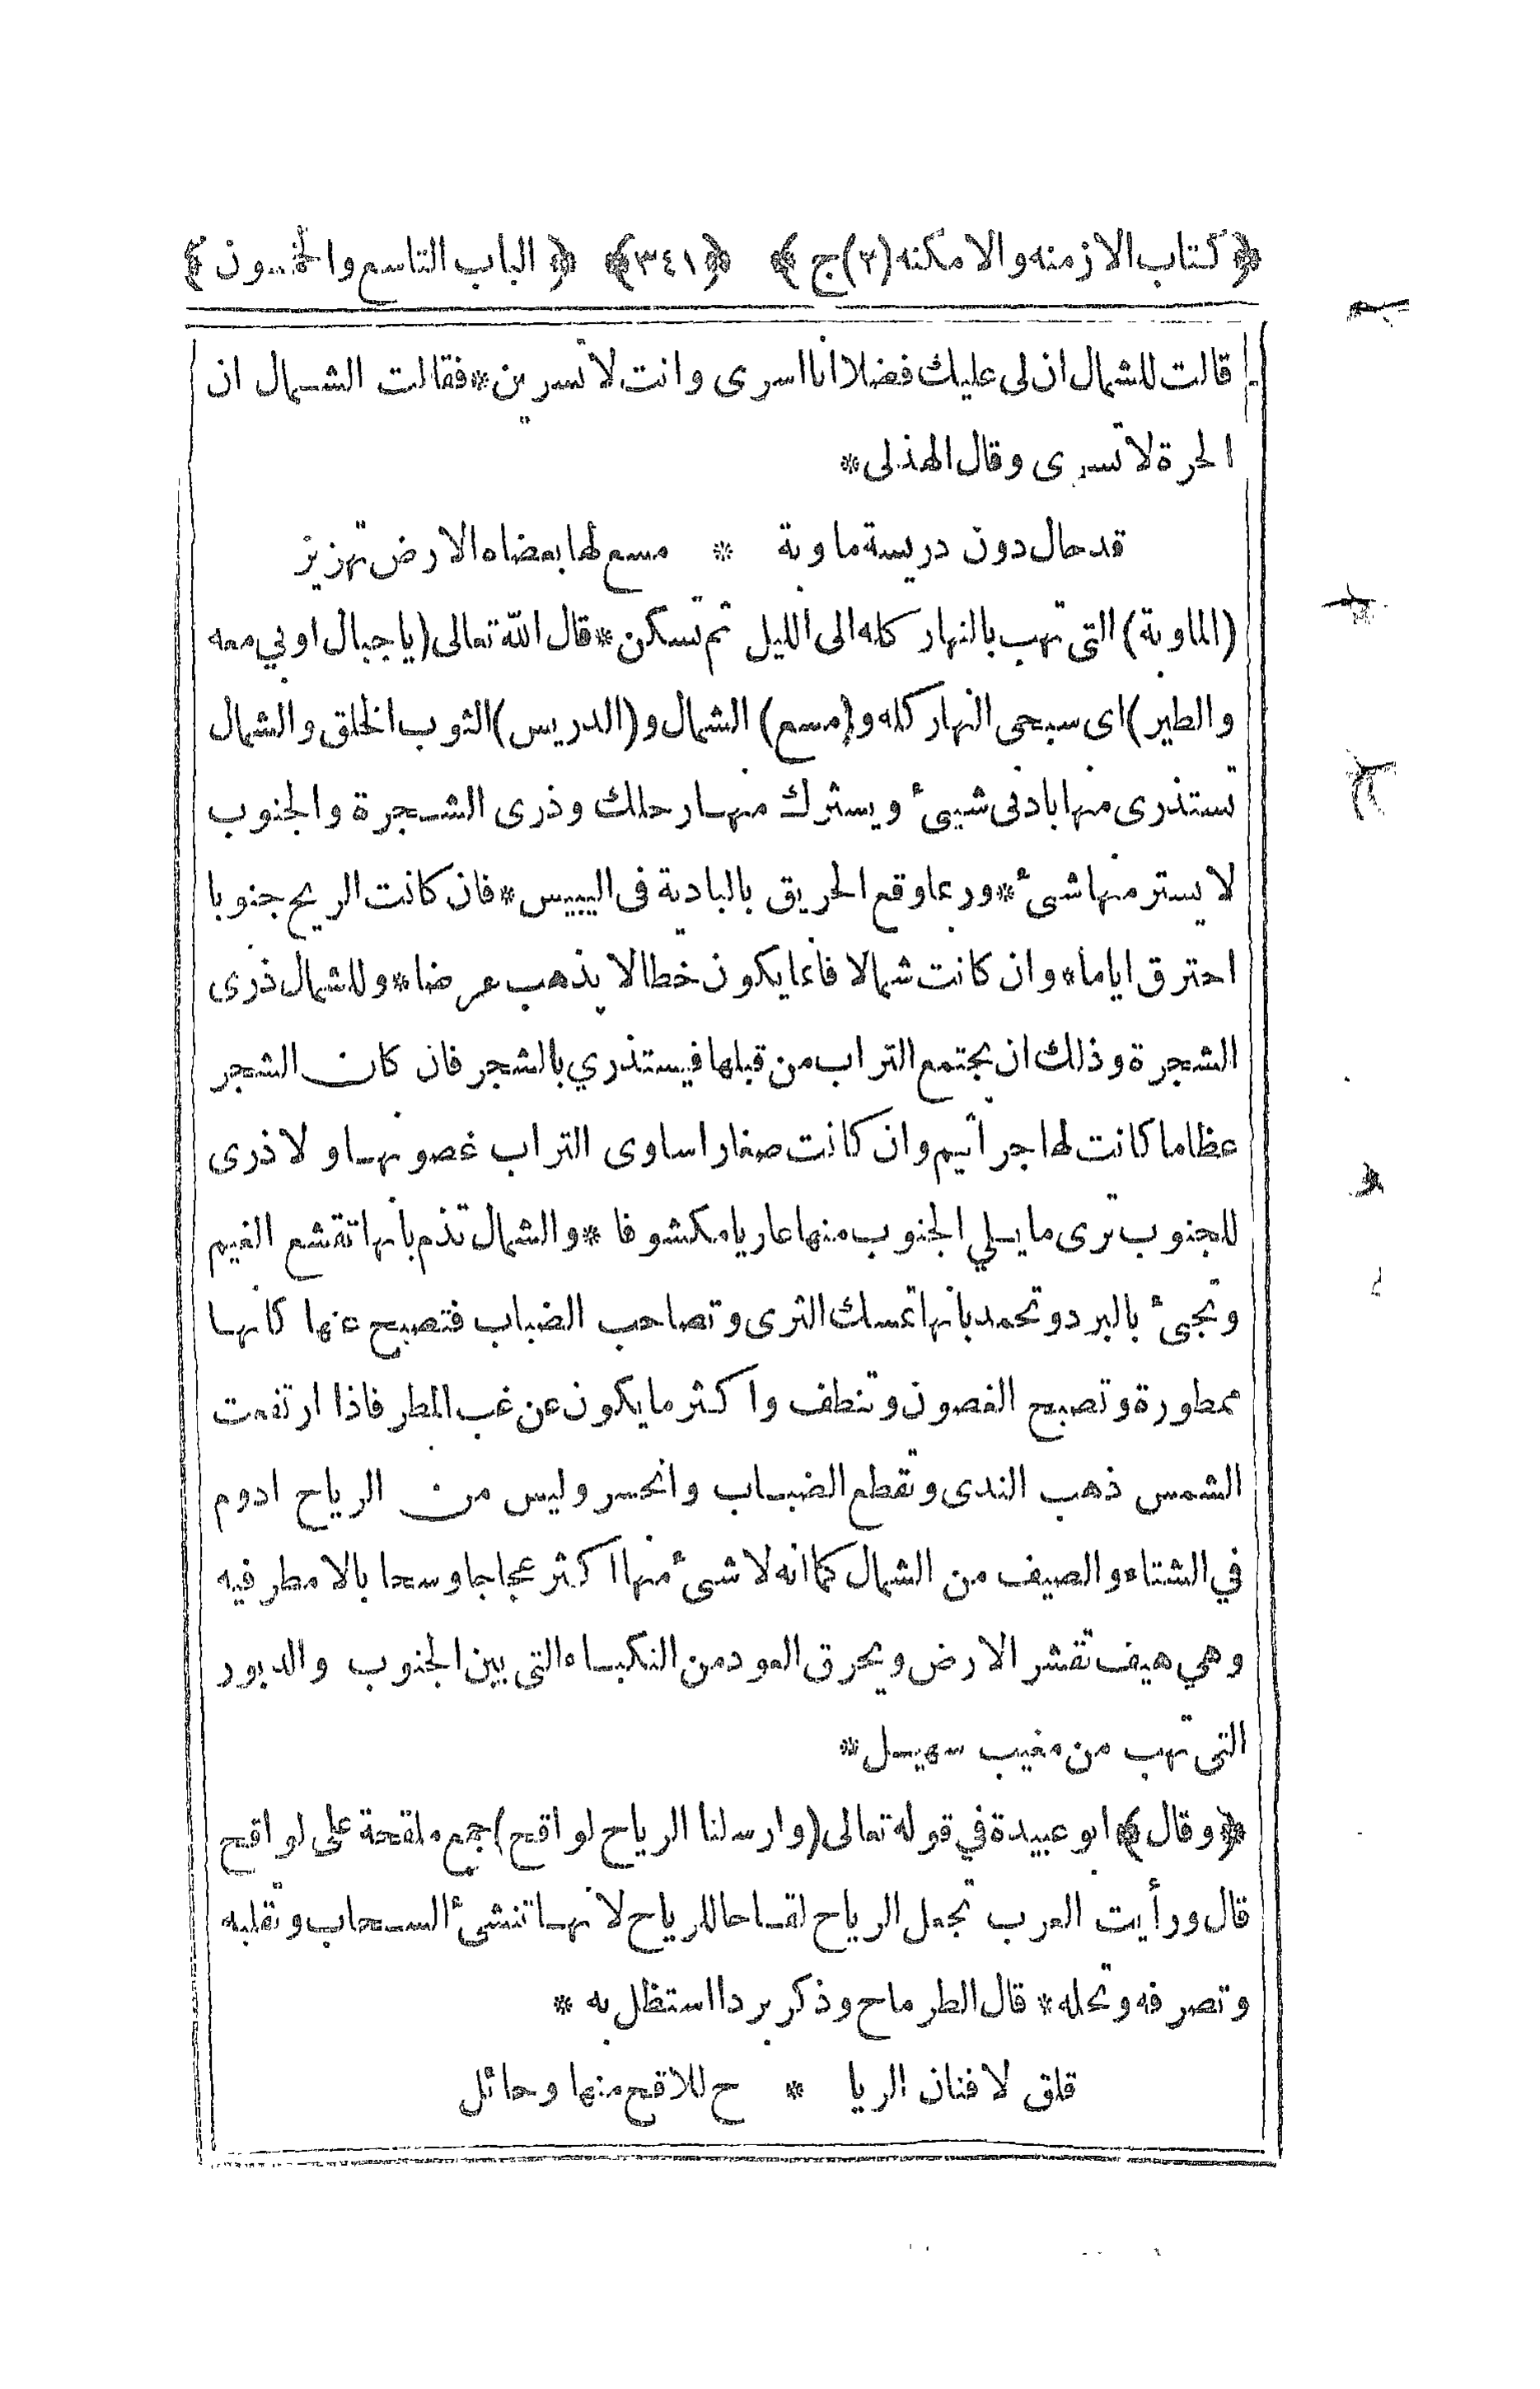 ﴿كتاب الازمنه والامكنه (٢) ج﴾ ﴿٣٤١﴾ ﴿الباب التاسع والخمسون﴾
قالت للشمال ان لى عليك فضلا انا اسرى وانت لا تسرين * فقالت الشمال ان
الحرة لا تسرى وقال الهذلى *
قد حال دون دريسة ماوبة * مسع لها بعضاه الارض تهزيز
(الماوبة) التى تهب بالنهار كله الى الليل ثم تسكن * قال الله تعالى (يا جبال اوبي معه
والطير) اى سبحى النهار كله و(مسع) الشمال و(الدريس) الثوب الخلق والشمال
تستذرى منها بادنى شيىٔ ويسترك منها رحلك وذرى الشجرة والجنوب
لا يستر منها شىٔ * وربما وقع الحريق بالبادية فى اليبيس * فان كانت الريح جنوبا
احترق اياما * وان كانت شمالا فانما يكون خطا لا يذهب عرضا * وللشمال ذرى
الشجرة وذلك ان يجتمع التراب من قبلها فيستذري بالشجر فان كان الشجر
عظاما كانت لها جراثيم وان كانت صغارا ساوى التراب غصونها ولا ذرى
للجنوب ترى ما يلي الجنوب منها عاريا مكشوفا * والشمال تذم بانها تقشع الغيم
وتجىٔ بالبرد وتحمد بانها تمسك الثرى وتصاحب الضباب فتصبح عنها كانها
ممطورة وتصبح الغصون وتنطف واكثر ما يكون عن غب المطر فاذا ارتفعت
الشمس ذهب الندى وتقطع الضباب وانحسر وليس من الرياح ادوم
في الشتاء والصيف من الشمال كما انه لا شىٔ منها اكثر عجاجا وسحابا لا مطر فيه
وهي هيف تقشر الارض ويحرق العود من النكباء التى بين الجنوب والدبور
التى تهب من مغيب سهيل *
﴿وقال﴾ ابو عبيدة في قوله تعالى (وارسلنا الرياح لواقح) جمع ملقحة على لواقح
قال ورأيت العرب تجعل الرياح لقاحا للرياح لانها تنشىٔ السحاب وتقلبه
وتصرفه وتحله * قال الطرماح وذكر بردا استظل به *
قلق لافنان الريا * ح للاقح منها وحائل